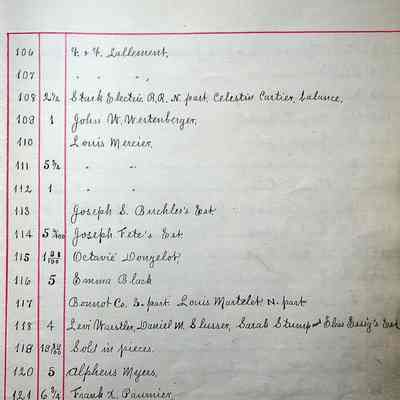 106 F. & F. Lallement,
107 " " ",
108 2½ Stark Electric R.R. N. part, Celestin Cartier, balance,
109 1 John W. Wertenberger,
110 Louis Mercier,
111 5¾ " "
112 1 " "
113 Joseph S. Birchler's Est
114 5 Joseph Fete's Est
115 Octavie Donzelot,
116 5 Emma Black
117 Bonnot Co. S. part Louis Martelot N. part
118 4 Levi Warstler, Daniel M. Slusser, Sarah Stump and Elias Essig's Est
119 Sold in pieces.
120 5 Alpheus Myers,
121 6¾ Frank X. Paumier,